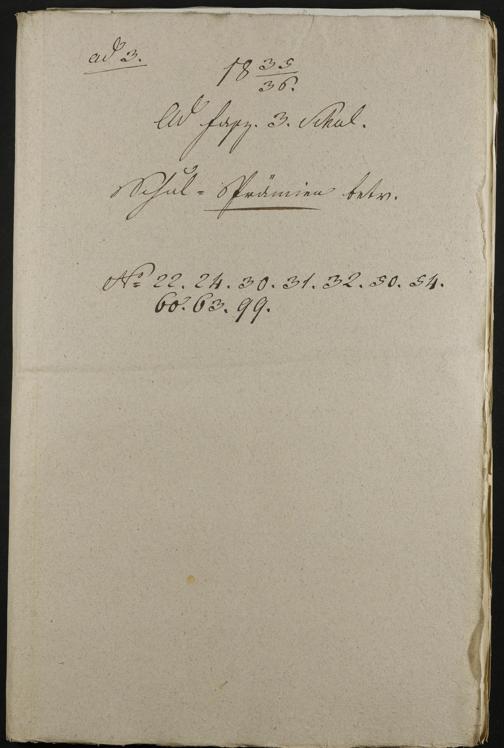 ad 3.
18 35/36.
Ad fasz. 3. Schul.
Schul-Prämien betr.
No 22. 24. 30. 31. 32. 50. 54.
60. 63. 99.